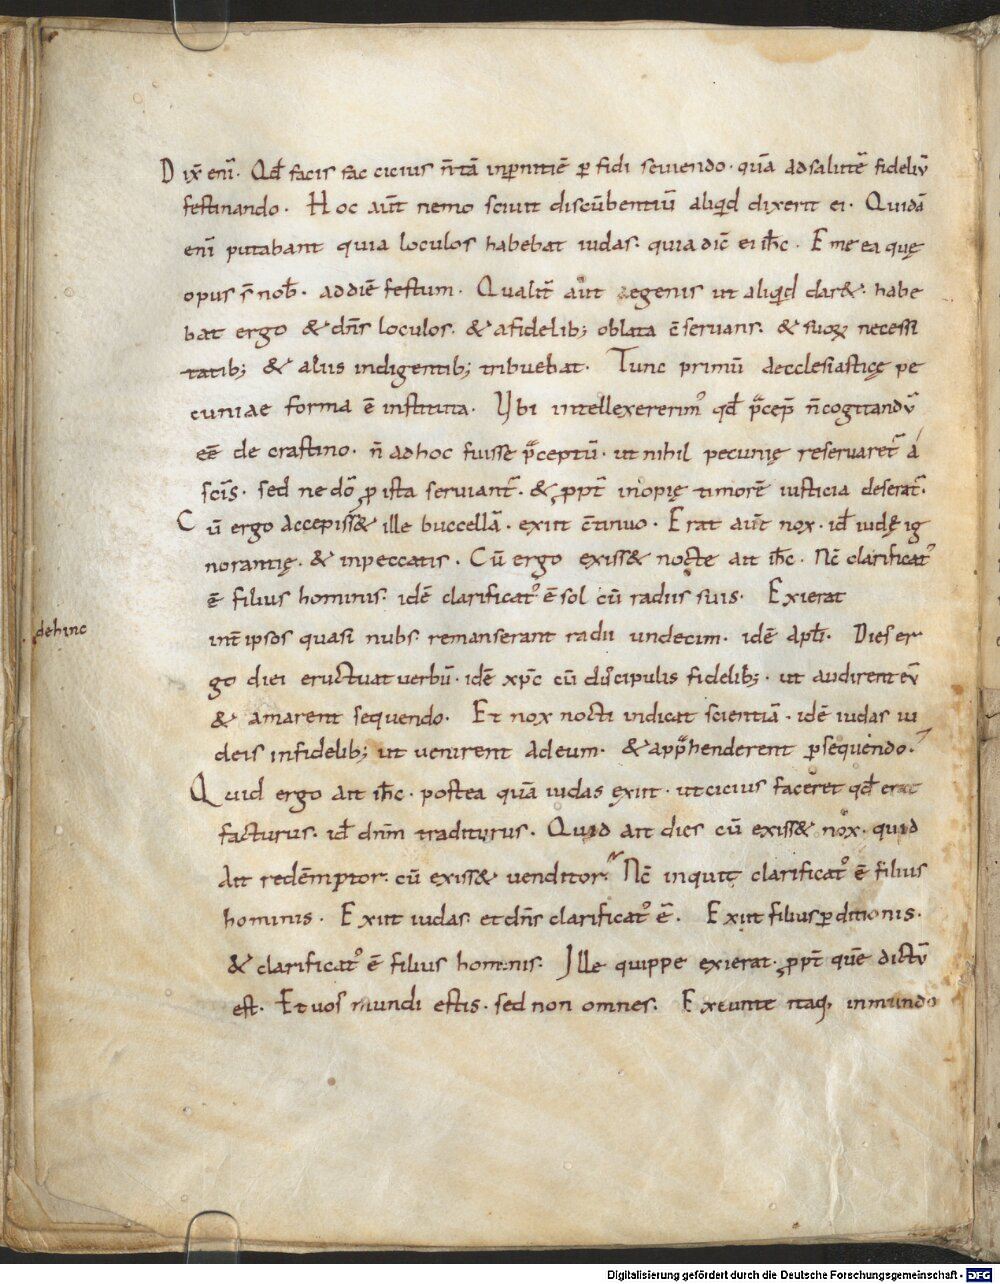 Dix̄ eni̅. Qd̄ facis fac cicius n̄ tā in ꝑnitiē ꝑfidi seuiendo. quā ad salutē fideliū
festinando. Hoc aūt nemo sciuit discūbentiū aliqd dixerit ei. Quidā
eni̅ putabant quia loculos habebat iudas. quia dic̄ ei ih̄c. Eme ea quę
opus s̄ nob̄. ad diē festum. Qualit̄ aūt egenis ut aliqd dar&. habe
bat ergo & dn̄s loculos. & a fidelib; oblata c̄seruans. & suoꝝ necessi
tatib; & aliis indigentib; tribuebat. Tunc primū aecclesiasticę pe
cuniae forma ē instituta. Ubi intellexerem᾽ qd̄ p̄cep̄ n̄ cogitandū
eē de crastino. n̄ ad hoc fuisse p̄ceptū. ut nihil pecunię reseruaret̄ á
sc̄is. sed ne dō ꝓ ista seruiant̄. & ꝓpt̄ inopię timorē iusticia deserat̄.
Cū ergo accepiss& ille buccellā. exiit c̄tinuo. Erat aūt nox. id̄ iudę ig
norantię. & in peccatis. Cū ergo exiss& nocte ait ih̄c. Nc̄ clarificat᾽
ē filius hominis. idē clarificat᾽ ē sol cū radiis suis. Exierat
int̄ ipsos quasi nubs. remanserant radii undecim. idē apl̄i. Dies er
dehinc
go diei eructuat uerbū. idē xp̄c cū discipulis fidelib;. ut audirent eū
& amarent sequendo. Et nox nocti indicat scientiā. idē iudas iu
deis infidelib; ut uenirent ad eum. & app̄henderent ꝑsequendo.
Quid ergo ait ih̄c. postea quā iudas exiit. ut cicius faceret qd̄ erat
facturus. id̄ dn̄m traditurus. Quid ait dies cū exiss& nox. quid
ait redēmptor. cū exiss& uenditor. Nc̄ inquit clarificat᾽ ē filius
hominis. Exiit iudas. et dn̄s clarificat᾽ ē. Exiit filius ꝑditionis.
& clarificat᾽ ē filius hominis. Ille quippe exierat. ꝓpt̄ quē dictū
est. Et uos mundi estis. sed non omnes. Exeunte itaq, inmundo
Digitalisierung gefördert durch die Deutsche Forschungsgemeinschaft - DFG